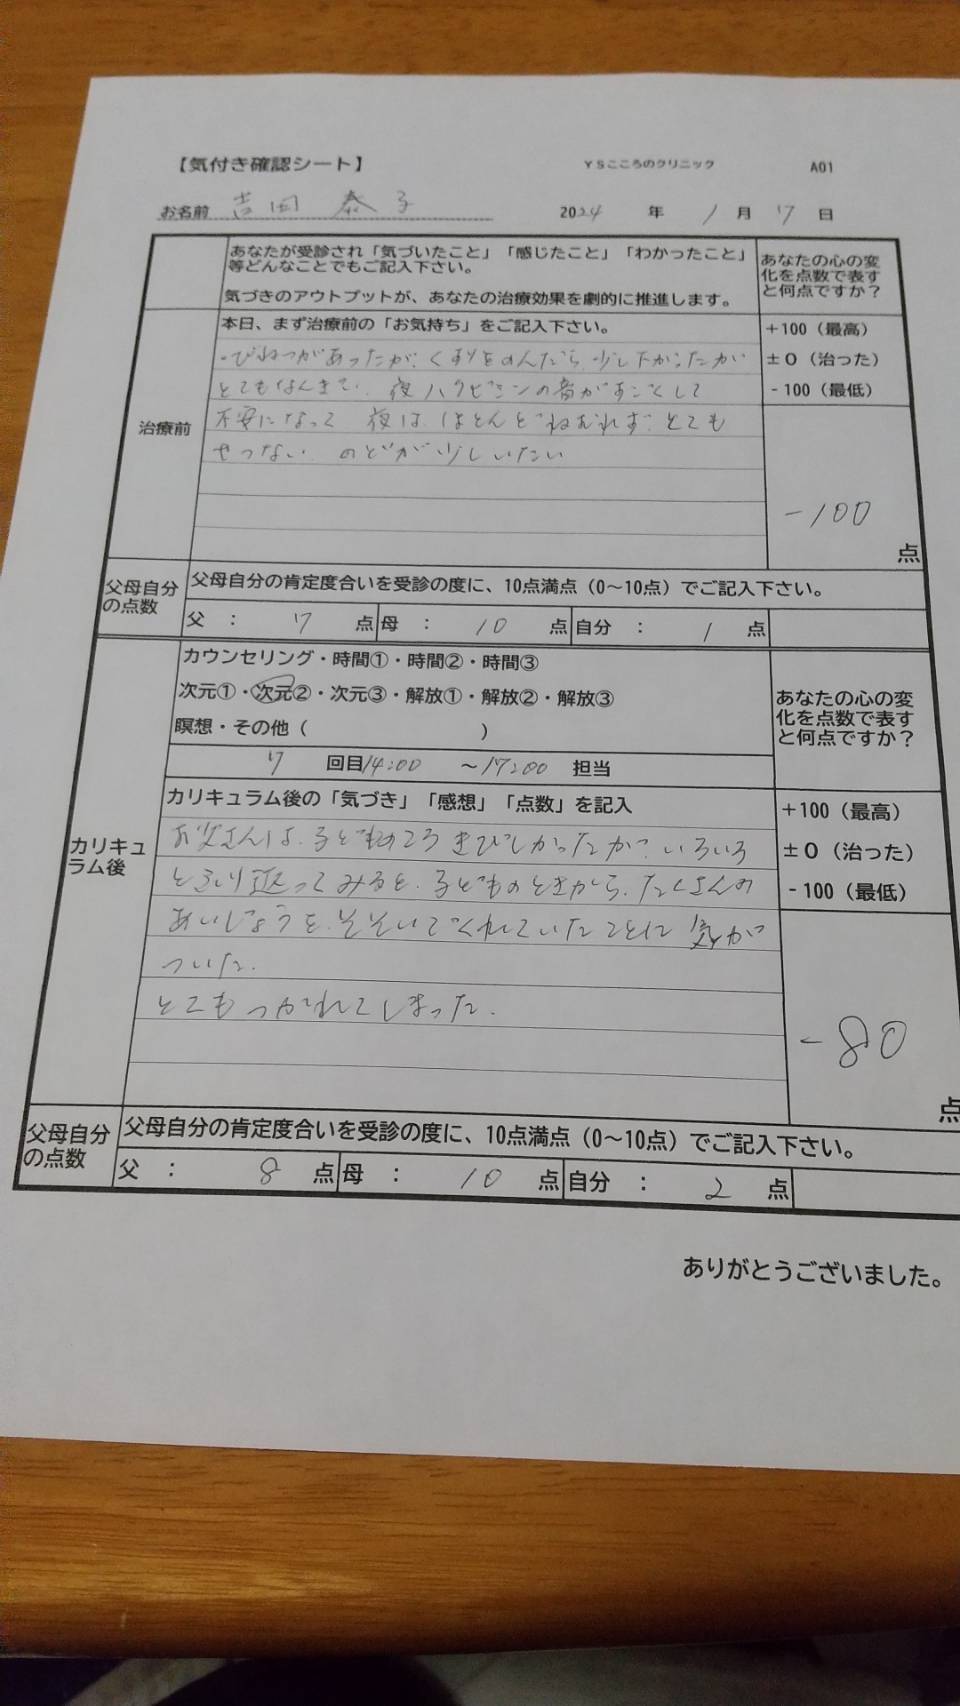 【気付き確認シート】 YSこころのクリニック A01
お名前 吉田 泰子 2024 年 1 月 17 日
あなたが受診され「気づいたこと」「感じたこと」「わかったこと」
等どんなことでもご記入下さい。
気づきのアウトプットが、あなたの治療効果を劇的に推進します。
あなたの心の変
化を点数で表す
と何点ですか？
治療前
本日、まず治療前の「お気持ち」をご記入下さい。
びねつがあったが、くすりをのんだら、少し下がったが
とても 夜 の音がすごくして
不安になって 夜は、ほとんどねむれず、とても
せつない のどが少しいたい
+100（最高）
±0（治った）
-100（最低）
-100
点
父母自分
の点数
父母自分の肯定度合いを受診の度に、10点満点（0～10点）でご記入下さい。
父 ： 7 点 母 ： 10 点 自分 ： 1 点
カリキュ
ラム後
カウンセリング・時間①・時間②・時間③
次元①・次元②・次元③・解放①・解放②・解放③
瞑想・その他（ ）
7 回目 14:00 ～17:00 担当
あなたの心の変
化を点数で表す
と何点ですか？
カリキュラム後の「気づき」「感想」「点数」を記入
お父さんは、子どものころ きびしかったが、いろいろ
とふり返ってみると、子どものときから、たくさんの
あいじょうを、そそいでくれていたことに 気が
ついた.
とてもつかれてしまった.
+100（最高）
±0（治った）
-100（最低）
-80
点
父母自分
の点数
父母自分の肯定度合いを受診の度に、10点満点（0～10点）でご記入下さい。
父 ： 8 点 母 ： 10 点 自分 ： 2 点
ありがとうございました。